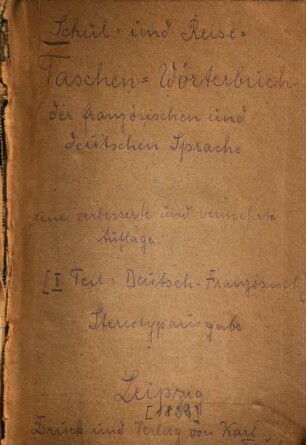 Schul- und Reise-
Taschen-Wörterbuch
der französischen und
deutschen Sprache
neue verbesserte und vermehrte
Auflage.
[I Teil: Deutsch-Französisch
Stereotypausgabe
Leipzig
Druck und Verlag von Karl